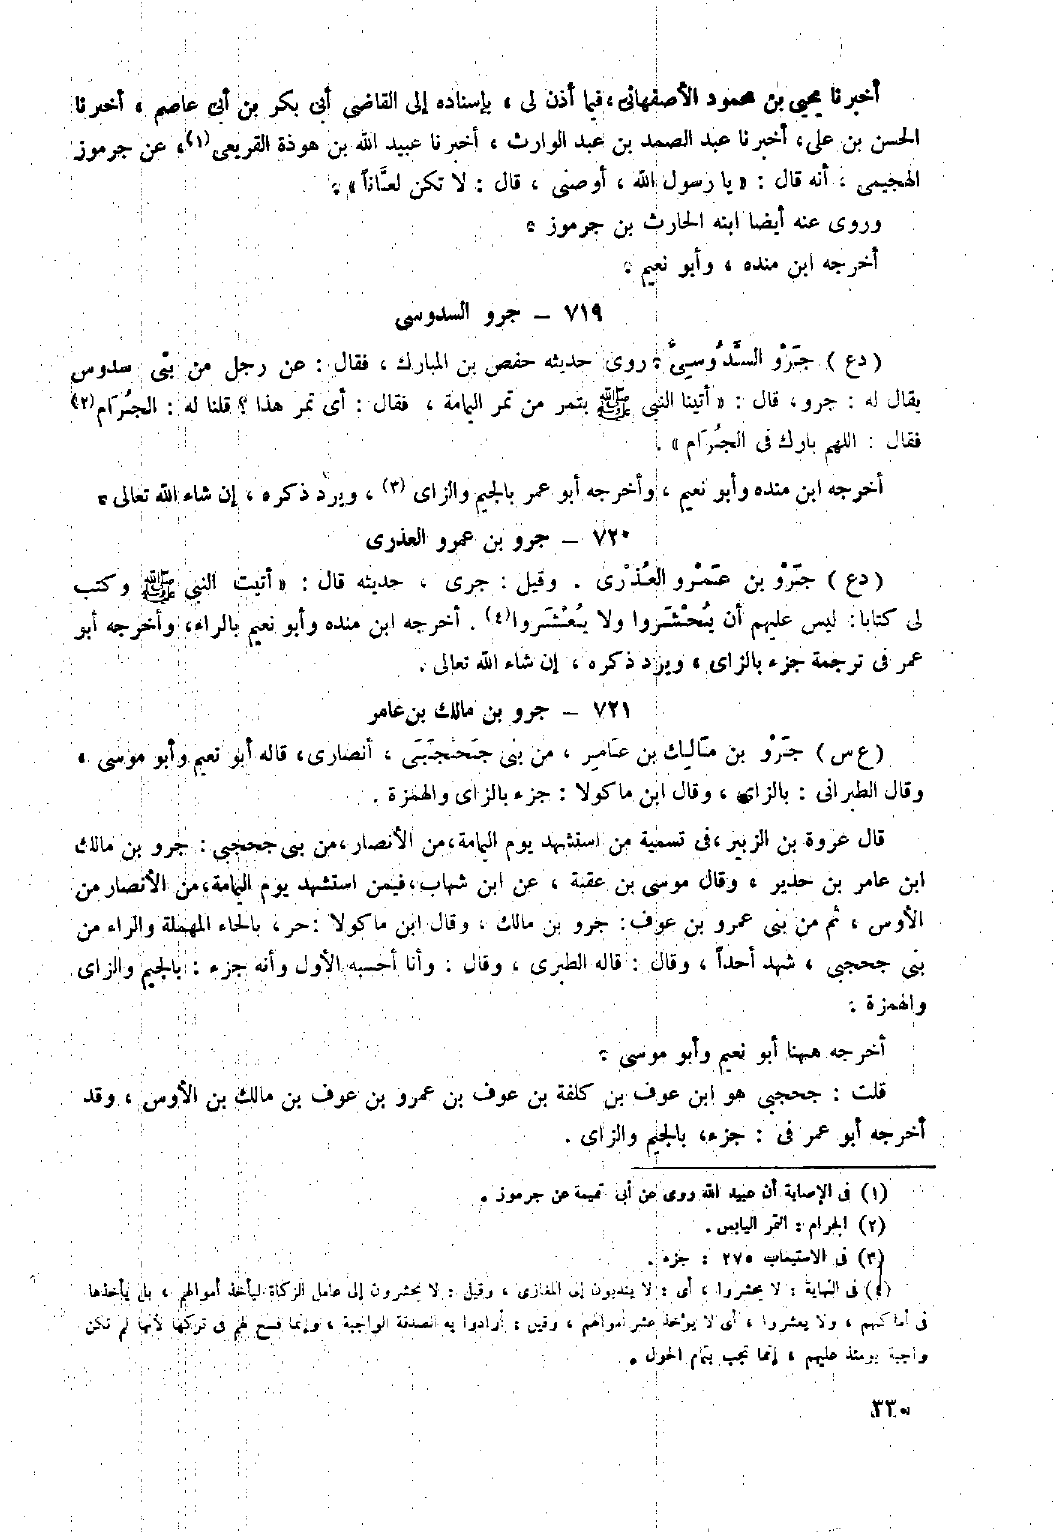 أخبرنا يحيى بن محمود الأصفهانى، فيما أذن لى ، بإسناده إلى القاضى أبى بكر بن أبى عاصم ، أخبرنا
الحسن بن على، أخبرنا عبد الصمد بن عبد الوارث ، أخبرنا عبيد الله بن هوذة القريعى(١)، عن جرموز
الهجيمى ، أنه قال : « يا رسول الله ، أوصنى ، قال : لا تكن لعَّاناً » .
وروى عنه أيضا ابنه الحارث بن جرموز .
أخرجه ابن منده ، وأبو نعيم .
٧١٩ – جرو السدوسى
( دع ) جَرْو السَّدُوسِىُّ . روى حديثه حفص بن المبارك ، فقال : عن رجل من بنى سدوس
يقال له : جرو، قال : « أتينا النبى ﷺ بتمر من تمر اليمامة ، فقال : أى تمر هذا ؟ قلنا له : الجُرَام(٢)
فقال : اللهم بارك فى الجُرَام » .
أخرجه ابن منده وأبو نعيم ، وأخرجه أبو عمر بالجيم والزاى (٣) ، ويرد ذكره ، إن شاء الله تعالى .
٧٢٠ – جرو بن عمرو العذرى
( دع ) جَرْو بن عَمْرو العُذْرى . وقيل : جرى ، حديثه قال : « أتيت النبي ﷺ وكتب
لى كتابا: ليس عليهم أن يُحْشَروا ولا يُعْشَروا(٤) . أخرجه ابن منده وأبو نعيم بالراء، وأخرجه أبو
عمر فى ترجمة جزء بالزاى ، ويرد ذكره ، إن شاء الله تعالى .
٧٢١ – جرو بن مالك بن عامر
( ع س ) جَرْو بن مَالِك بن عَامِر ، من بنى جَحْجَبَى ، أنصارى، قاله أبو نعيم وأبو موسى .
وقال الطبرانى : بالزاى ، وقال ابن ماكولا : جزء بالزاى والهمزة .
قال عروة بن الزبير ،فى تسمية من استشهد يوم اليمامة،من الأنصار ،من بنى جحجبى : جرو بن مالك
ابن عامر بن حدير ، وقال موسى بن عقبة ، عن ابن شهاب،فيمن استشهد يوم اليمامة،من الأنصار من
الأوس ، ثم من بنى عمرو بن عوف: جرو بن مالك ، وقال ابن ماكولا :حر، بالحاء المهملة والراء من
بنى جحجبى ، شهد أحداً ، وقال : قاله الطبرى ، وقال : وأنا أحسبه الأول وأنه جزء : بالجيم والزاى
والهمزة :
أخرجه ههنا أبو نعيم وأبو موسى .
قلت : جحجبى هو ابن عوف بن كلفة بن عوف بن عمرو بن عوف بن مالك بن الأوس ، وقد
أخرجه أبو عمر فى : جزء، بالجيم والزاى .
(١) فى الإصابة أن عبيد الله روى عن أبى تميمة عن جرموز .
(٢) الجرام : التمر اليابس .
(٣) فى الاستيعاب ٢٧٥ : جزء .
(٤) فى النهاية : لا يحشروا ، أى : لا يندبون إلى المغازى ، وقيل : لا يحشرون إلى عامل الزكاة ليأخذ أموالهم ، بل يأخذها
فى أماكنهم ، ولا يعشروا ، أى لا يؤخذ عشر أموالهم ، وقيل : أرادوا به الصدقة الواجبة ، وإنما فسح لهم فى تركها لأنها لم تكن
واجبة يومئذ عليهم ، إنما تجب بتمام الحول .
٣٣٠